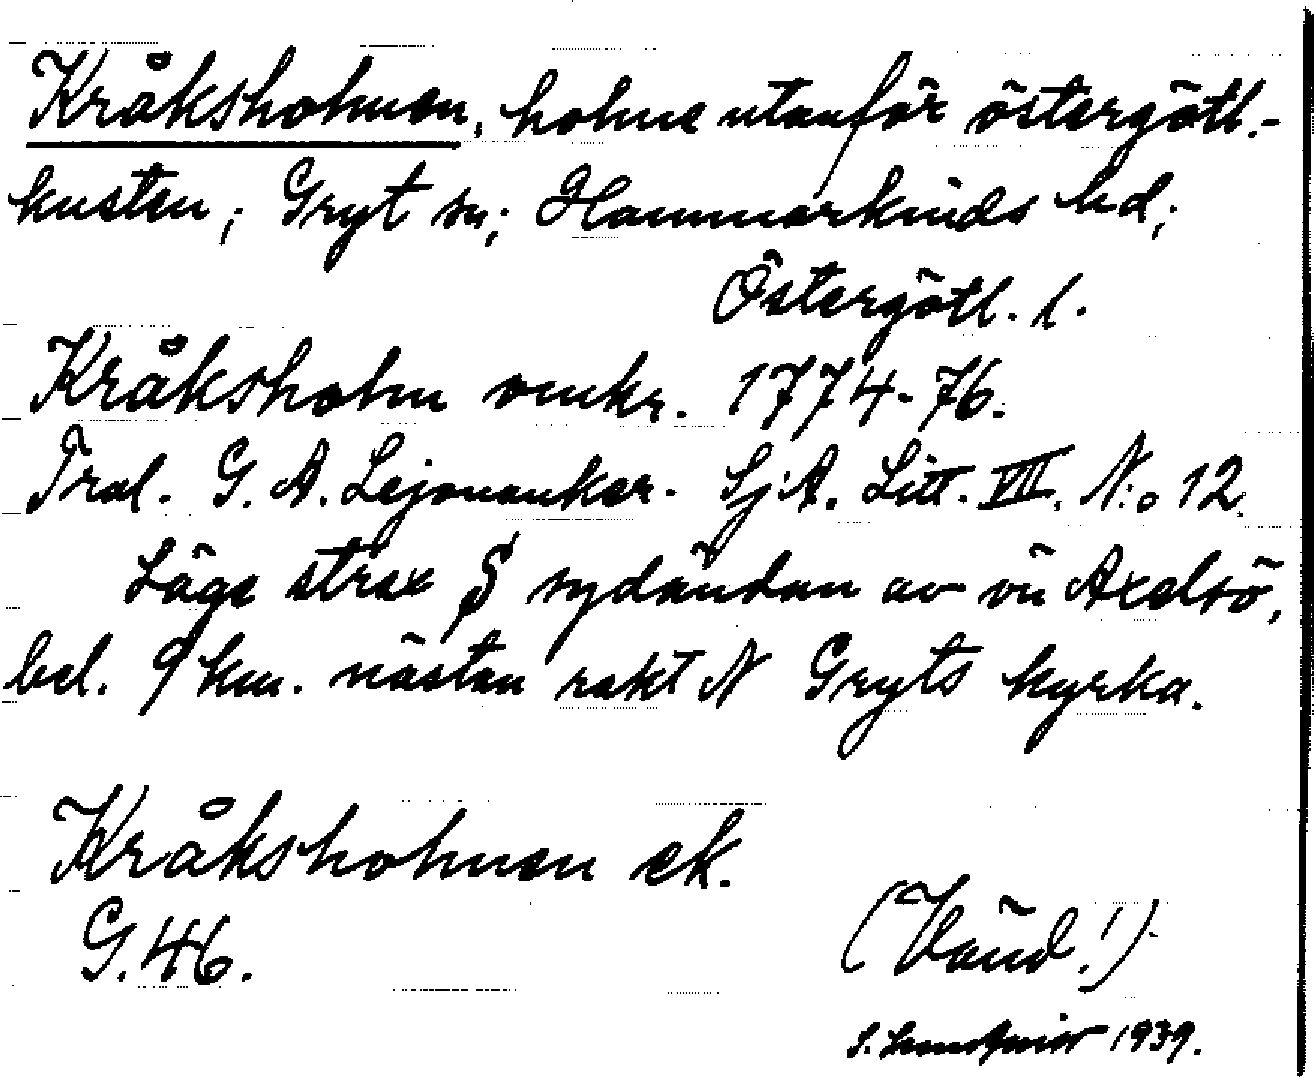 Kråksholmen, holme utanför östergötl.-
kusten; Gryt sn; Hammarkinds hd;
Östergötl. l.
Kråksholm omkr. 1774-76.
Tral. G. A. Lejonanker. Sj.A. Litt. VII. N:o 12.
Läge strax S sydändan av ön Axelsö,
bel. 9 km. nästan rakt N Gryts kyrka.
Kråksholmen ek.
G. 46.
(Vänd!)
S. Lundqvist 1939.